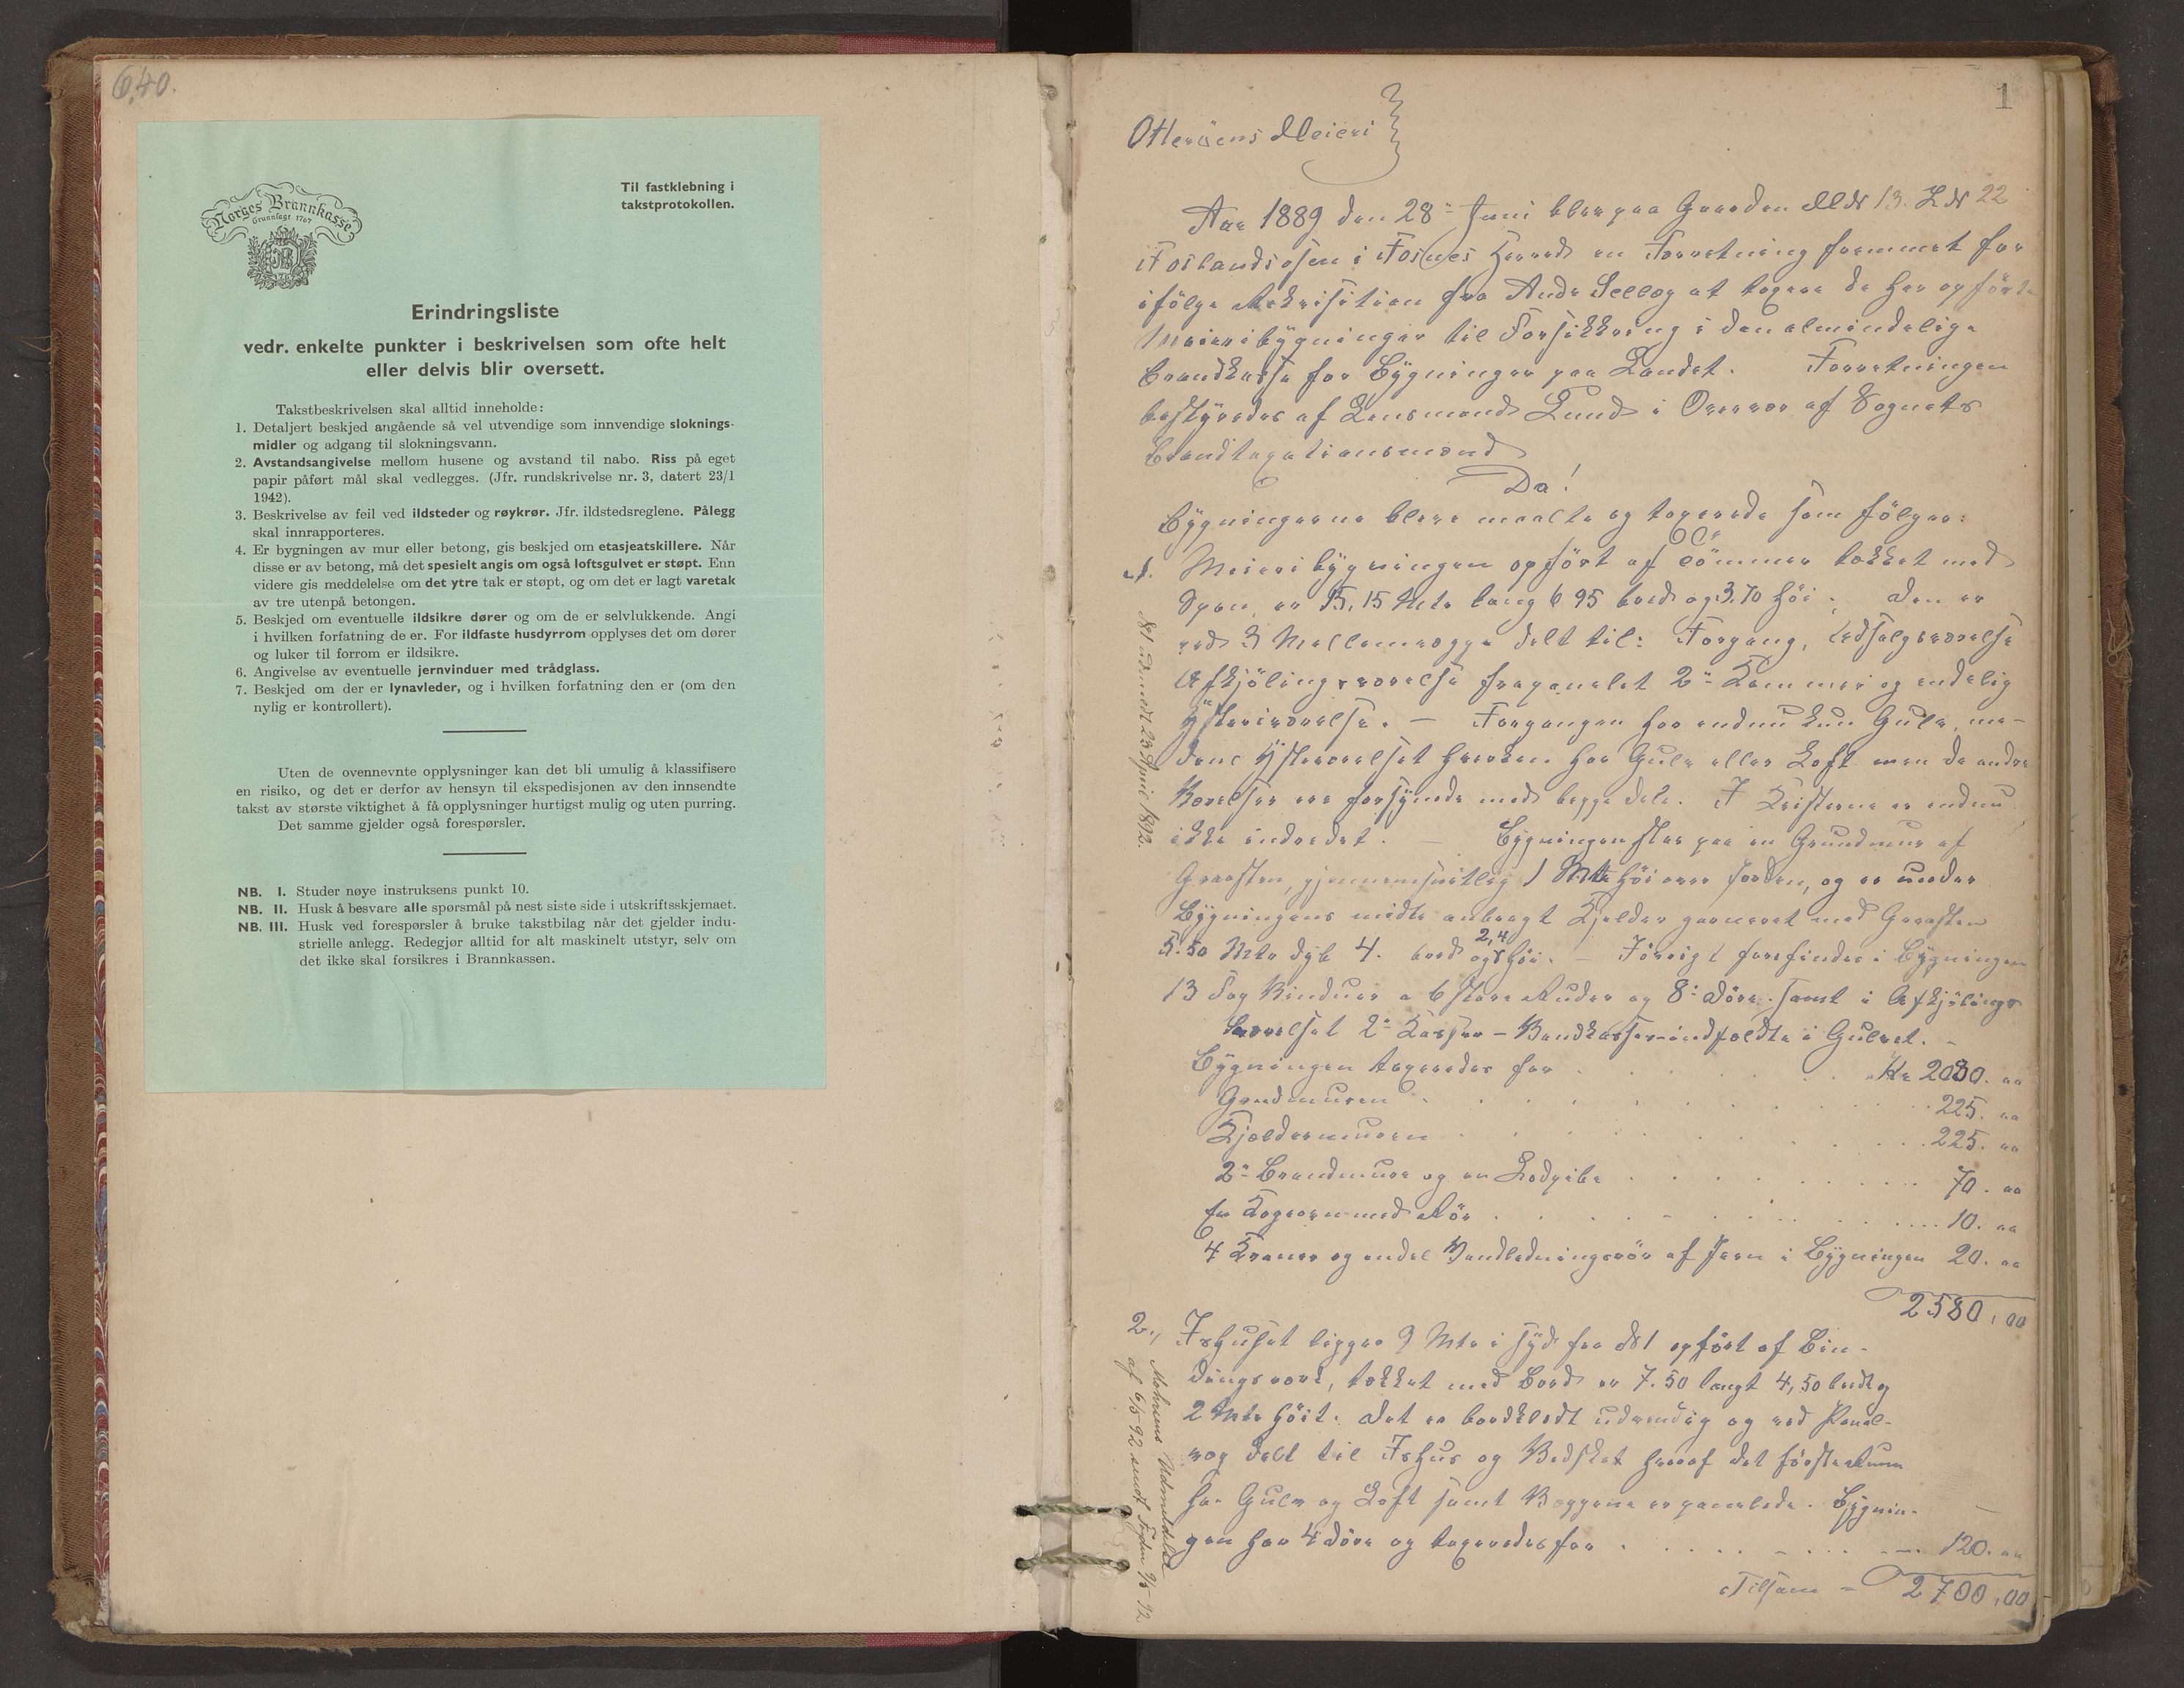 640.
Norges Brannkasse
Grunnlagt 1767
Til fastklebning i
takstprotokollen.
Erindringsliste
vedr. enkelte punkter i beskrivelsen som ofte helt
eller delvis blir oversett.
Takstbeskrivelsen skal alltid inneholde:
1. Detaljert beskjed angående så vel utvendige som innvendige sloknings-
midler og adgang til slokningsvann.
2. Avstandsangivelse mellom husene og avstand til nabo. Riss på eget
papir påført mål skal vedlegges. (Jfr. rundskrivelse nr. 3, datert 23/1
1942).
3. Beskrivelse av feil ved ildsteder og røykrør. Jfr. ildstedsreglene. Pålegg
skal innrapporteres.
4. Er bygningen av mur eller betong, gis beskjed om etasjeatskillere. Når
disse er av betong, må det spesielt angis om også loftsgulvet er støpt. Enn
videre gis meddelelse om det ytre tak er støpt, og om det er lagt varetak
av tre utenpå betongen.
5. Beskjed om eventuelle ildsikre dører og om de er selvlukkende. Angi
i hvilken forfatning de er. For ildfaste husdyrrom opplyses det om dører
og luker til forrom er ildsikre.
6. Angivelse av eventuelle jernvinduer med trådglass.
7. Beskjed om der er lynavleder, og i hvilken forfatning den er (om den
nylig er kontrollert).
Uten de ovennevnte opplysninger kan det bli umulig å klassifisere
en risiko, og det er derfor av hensyn til ekspedisjonen av den innsendte
takst av største viktighet å få opplysninger hurtigst mulig og uten purring.
Det samme gjelder også forespørsler.
NB. I. Studer nøye instruksens punkt 10.
NB. II. Husk å besvare alle spørsmål på nest siste side i utskriftsskjemaet.
NB. III. Husk ved forespørsler å bruke takstbilag når det gjelder indu-
strielle anlegg. Redegjør alltid for alt maskinelt utstyr, selv om
det ikke skal forsikres i Brannkassen.
1
Otterøens Meieri
Aar 1889 den 28de Juni blev paa Gaarden M № 13. L № 22
Foslandsosen i Fosnes Herred en Forretning fremmet for
ifølge Rekvisition fra Andr Selleg at taxere de her opførte
Meieribygninger til Forsikkring i den almindelige
Brandkasse for Bygninger paa Landet. Forretningen
bestyredes af Lensmand Lund i Overvær af Sognets
Brandtaxationsmænd
Da!
Bygningerne bleve maalte og taxerede som følger:
1. Meieribygningen opført af Tømmer tækket med
Spon er 15,15 Mtr lang 6 95 bred og 3,70 høi. Den er
ved 3 Mellemvægge delt til: Forgang, Udsalgsværelse
Afkjølingsværelse fraparelet 2de Kammer og endelig
Ysteriværelse. — Forgangen har endnu kun Gulv, me-
dens Ysteværelset hverken har Gulv eller Loft men de andre
Værelser ere forsynede med begge dele. I Kvisterne er endnu
ikke indredet. — Bygningen staar paa en Grundmur af
Graasten, gjennemsnitlig 1 Mtr høi over Jorden, og er under
Bygningens midte anbragt Kjelder garneret med Graasten
5.50 Mtr dyb 4. bred og 2,4 høi. — Iøvrigt forefindes i Bygningen
13 Fag Vinduer a 6 store Ruder og 8 Døre. samt i Afkjølings
værelset 2de Kasser – Vandkasser – indfældte i Gulvet. –
Bygningen taxeredes for Kr 2030. 00
Grundmuren 225. 00
Kjældermuren 225. 00
2de Brandmure og en Lodpibe 70. 00
En Kogeovn med Rør 10. 00
4 Kraner og endel Vandledningsrør af Jern i Bygningen 20. 00
2580,00
2., Ishuset ligger 9 Mtr i syd fra № 1 opført af Bin-
dingsværk, tækket med Bord er 7.50 langt 4,50 bredt og
2 Mtr høit. Det er bordklædt udvendig og ved Panel-
væg delt til Ishus og Vedskot hvoraf det første Rum
har Gulv og Loft samt Væggene er panelede. Bygnin-
gen har 4 Døre og taxeredes for 120. 00
Tilsam – 2700,00
№ 1 udmeldt 23 April 1892.
Mohrens Udmeldelse
af 6/5 92 sendt Fogden 9/5 92